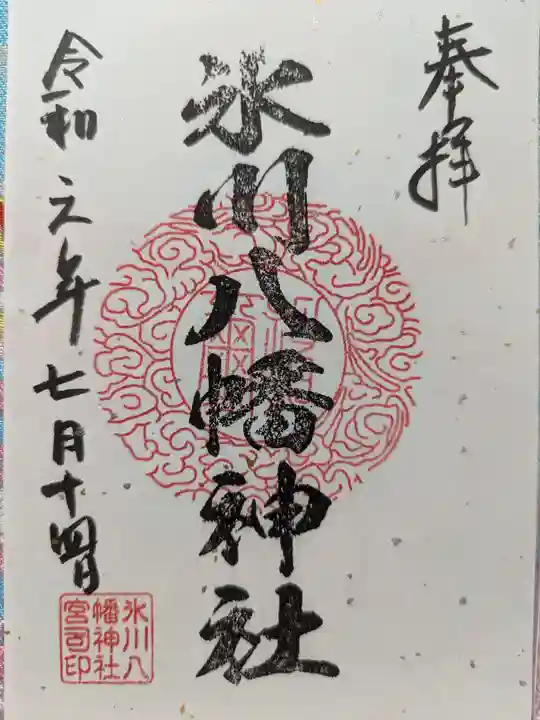 奉拝
氷川八幡神社
令和元年七月十四日
氷川八
幡神社
宮司印